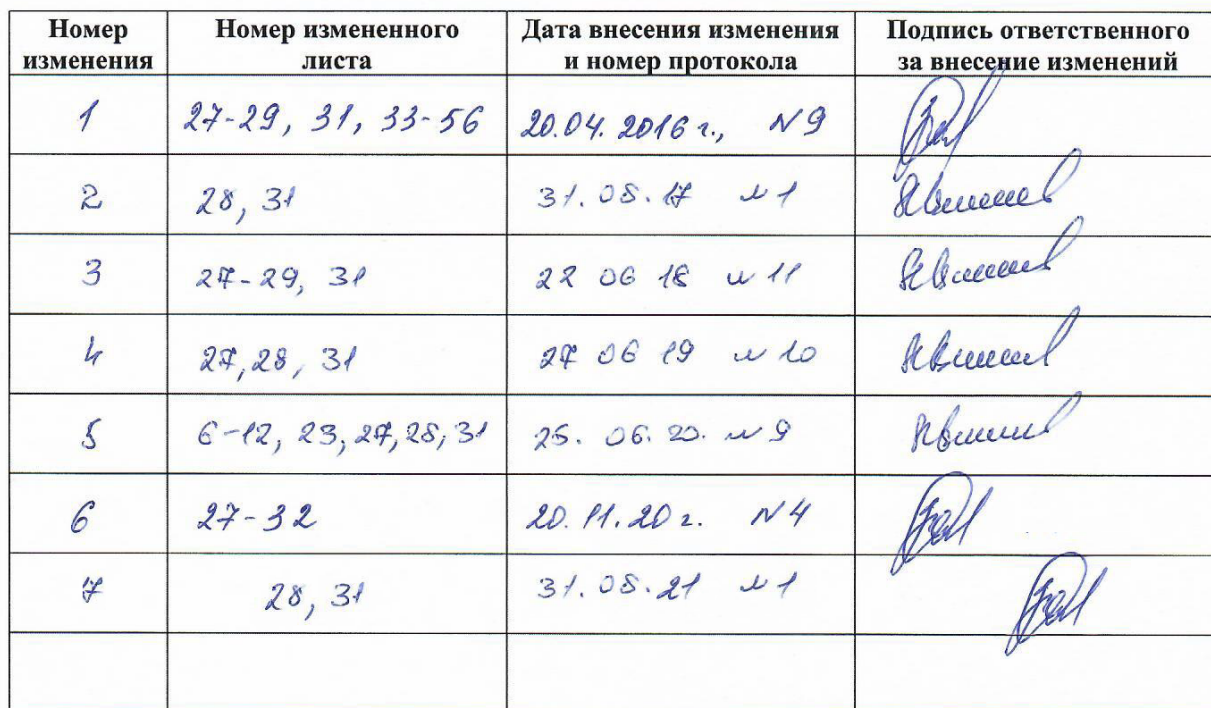 Номер изменения Номер измененного листа Дата внесения изменения и номер протокола Подпись ответственного за внесение изменений
1 27-29, 31, 33-56 20.04.2016 г., №9
2 28, 31 31.08.17 №1
3 27-29, 31 22 06 18 №11
4 27, 28, 31 27 06 19 №10
5 6-12, 23, 27, 28, 31 25.06.20. №9
6 27-32 20.11.20 г. №4
7 28, 31 31.08.21 №1